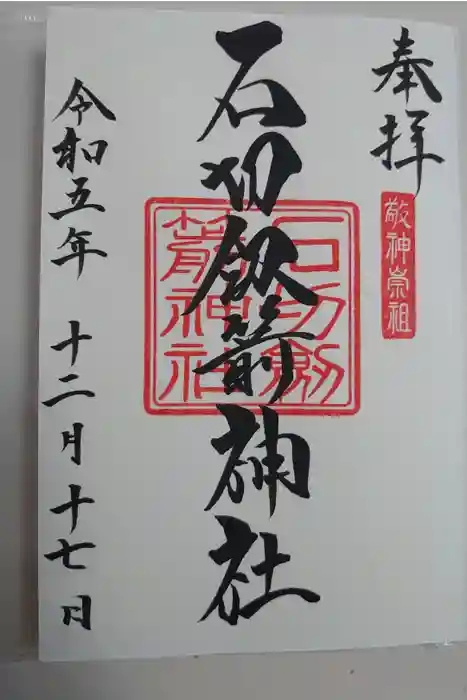 奉拝
敬神崇祖
石切釼箭神社
石切劔
箭神社
令和五年 十二月十七日